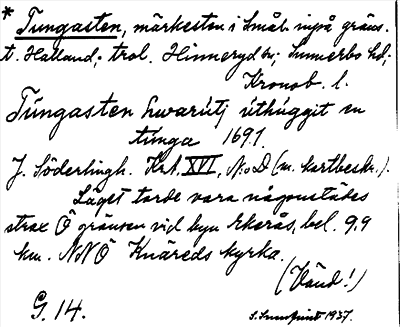 * Tungasten, märkesten i Smål. inpå gräns.
t. Halland; trol. Hinneryd sn; Sunnerbo hd;
Kronob. l.
Tungasten hwarutj úthúggit en
túnga 1691.
J. Söderlingh. Krt. XVI, N:o D (m. kartbeskr.).
Läget torde vara någonstädes
strax Ö gränsen vid byn Ekerås, bel. 9,9
km. NNÖ Knäreds kyrka.
(Vänd!)
G. 14.
1937.